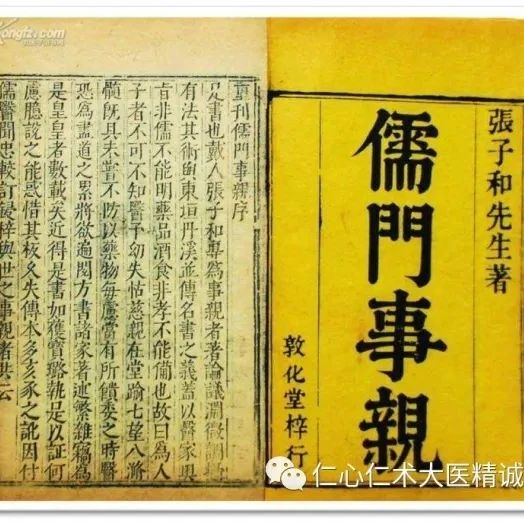 張子和先生著
儒門事親
敦化堂梓行
重刊儒門事親序
是書也戴人張子和專為事親者著論議淵微調攝
有法其術與東垣丹溪並傳名書之義蓋以醫家奧
旨非儒不能明藥品酒食非孝不能備也故曰為人
子者不可不知醫予幼失怙慈親在堂踰七望八滫
髓既具未嘗不防以藥物每慮嘗有所饋委之時醫
恐為盡道之累將欲遍閱方書諸家著述繁雜竊為
是皇皇者數載矣近得是書如獲寶璐執是足以証何
慮聽說之能惑惜其板久失傳本多亥豕之訛因付
儒醫聞忠較訂鋟梓與世之事親者共云
仁心仁术大医精诚